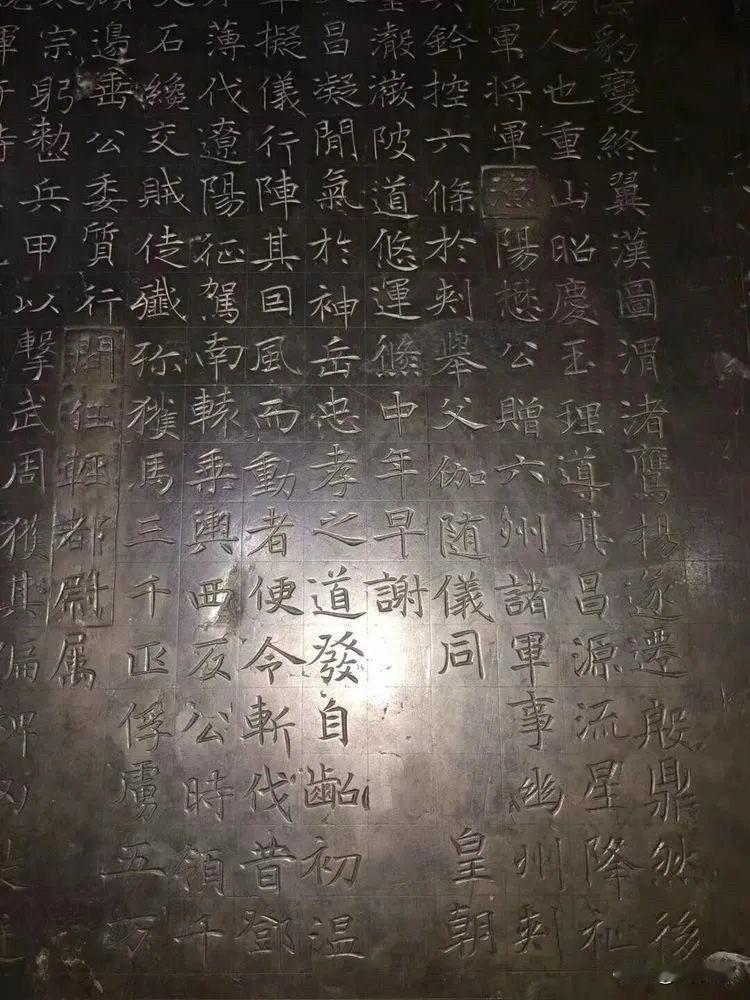 豹變終翼漢圖渭渚鷹揚遂遷殷鼎然後
陽人也重山昭慶玉理導其昌源流星降祉
軍將軍漁陽懋公贈六州諸軍事幽州刾
鈐控六條於刾舉父伽随儀同 皇朝
陂道悠運倏中年早謝
昌凝閒氣於神岳忠孝之道發自齠初温
擬儀行陣其回風而動者便令斬伐昔鄧
薄代遼陽征駕南轅乘輿西反公時領千
石纔交賊徒殲殄獲馬三千疋俘虜五万
邊垂公委質行間任輕都尉属
宗躬勒兵甲以擊武周獲其偏裨凶